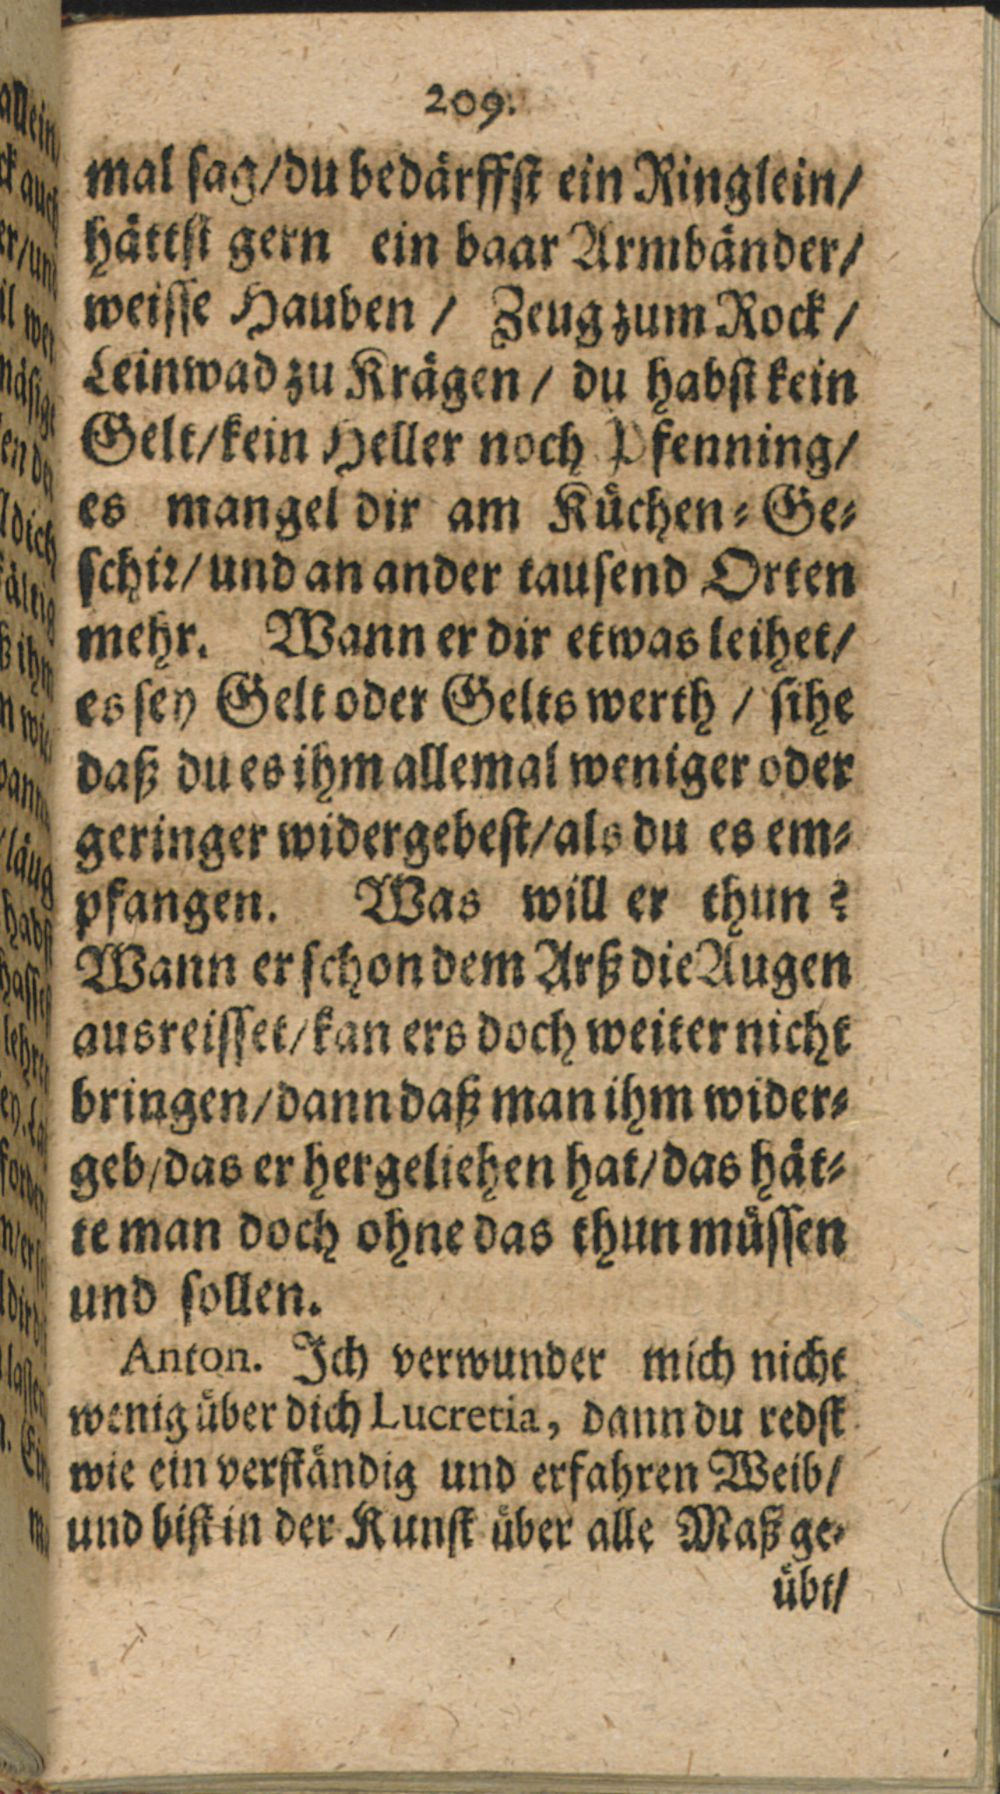 209.
mal sag/du bedärffst ein Ringlein/
hättst gern ein baar Armbänder/
weisse Hauben / Zeug zum Rock /
Leinwad zu Krägen / du habst kein
Gelt/kein Heller noch Pfenning/
es mangel dir am Küchen-Ge-
schir/ und an ander tausend Orten
mehr. Wann er dir etwas leihet/
es sey Gelt oder Gelts werth / sihe
daß du es ihm allemal weniger oder
geringer widergebest/als du es em-
pfangen. Was will er thun?
Wann er schon dem Arß die Augen
ausreisset/kan ers doch weiter nicht
bringen/dann daß man ihm wider-
geb/das er hergeliehen hat/das hät-
te man doch ohne das thun müssen
und sollen.
Anton. Ich verwunder mich nicht
wenig über dich Lucretia, dann du redst
wie ein verständig und erfahren Weib/
und bist in der Kunst über alle Maß ge-
übt/